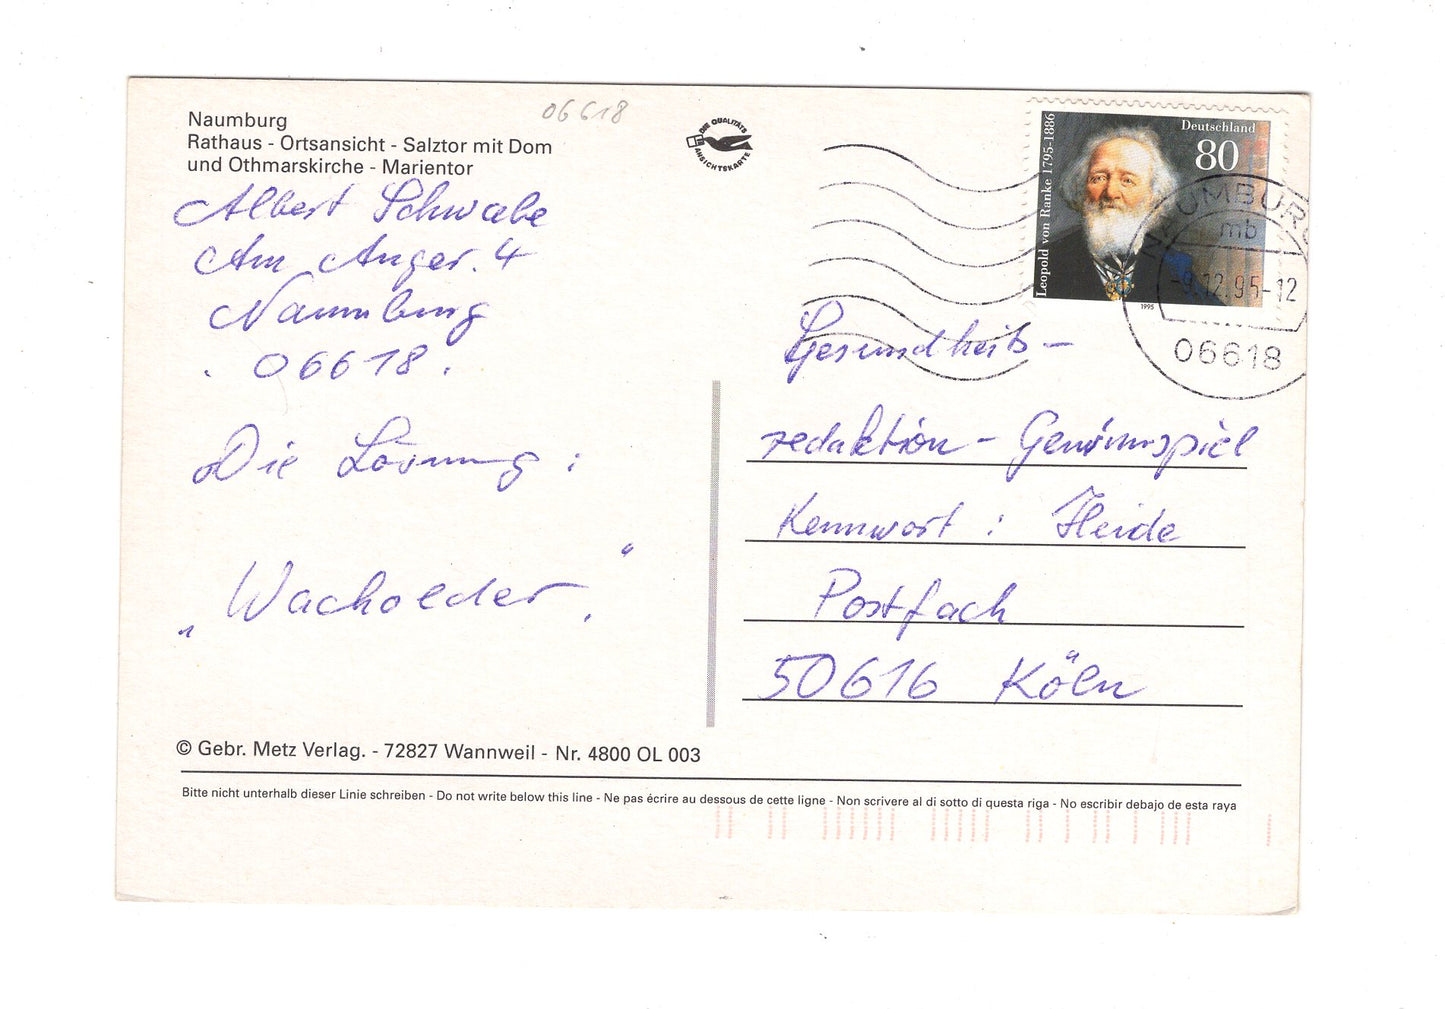 Naumburg
Rathaus - Ortsansicht - Salztor mit Dom
und Othmarskirche - Marientor
06618
DIE QUALITÄTS
ANSICHTSKARTE
Deutschland
80
Leopold von Ranke 1795-1886
1995
NAUMBURG
mb
-9.12.95-12
06618
Albert Schwabe
Am Anger. 4
Naumburg
. 06618 .
Die Lösung :
„Wacholder."
Gesundheits-
redaktion - Gewinnspiel
Kennwort : Heide
Postfach
50616 Köln
© Gebr. Metz Verlag. - 72827 Wannweil - Nr. 4800 OL 003
Bitte nicht unterhalb dieser Linie schreiben - Do not write below this line - Ne pas écrire au dessous de cette ligne - Non scrivere al di sotto di questa riga - No escribir debajo de esta raya